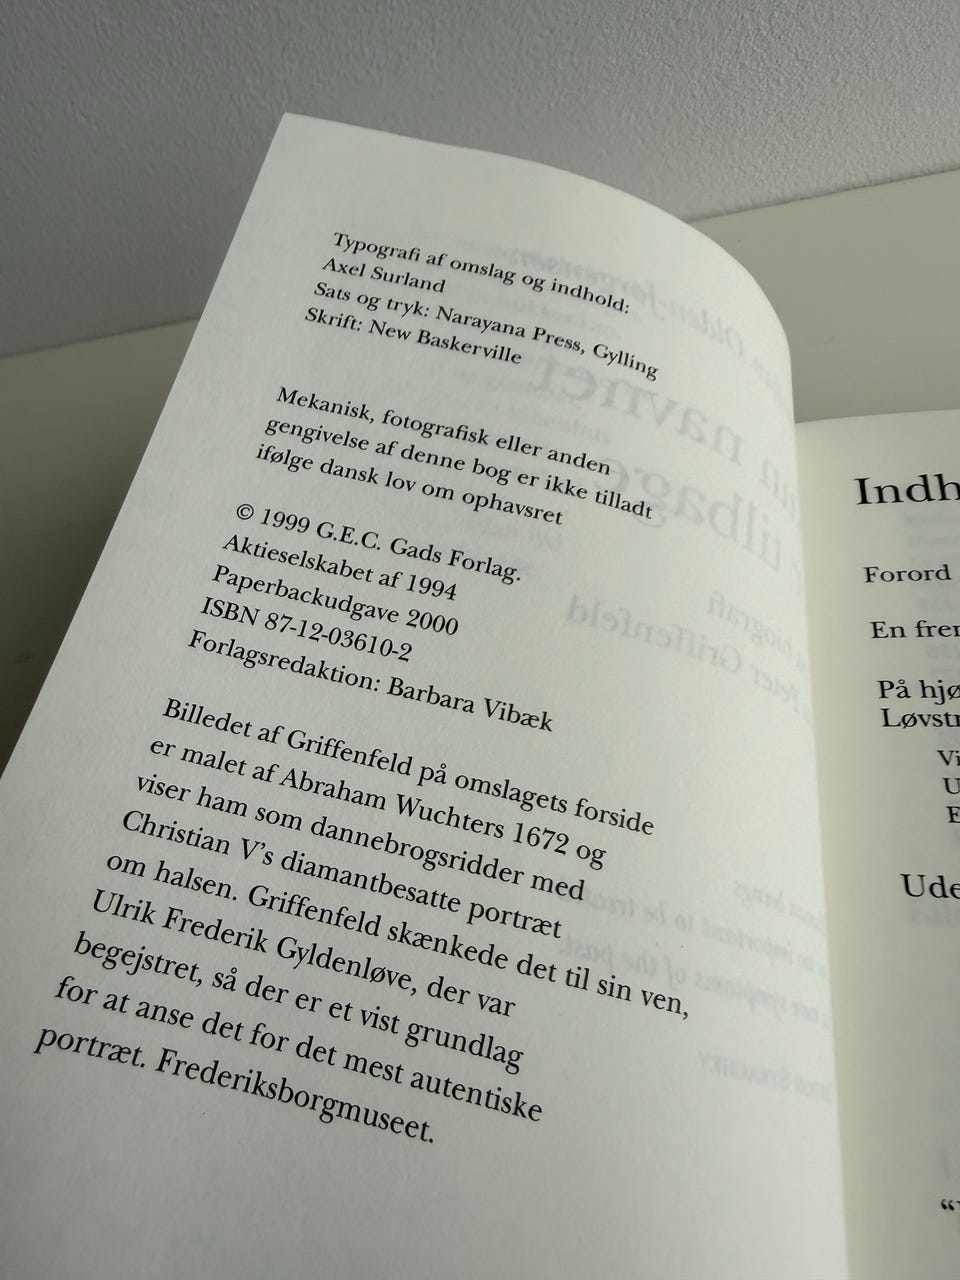 Typografi af omslag og indhold:
Axel Surland
Sats og tryk: Narayana Press, Gylling
Skrift: New Baskerville
Mekanisk, fotografisk eller anden
gengivelse af denne bog er ikke tilladt
ifølge dansk lov om ophavsret
© 1999 G.E.C. Gads Forlag.
Aktieselskabet af 1994
Paperbackudgave 2000
ISBN 87-12-03610-2
Forlagsredaktion: Barbara Vibæk
Billedet af Griffenfeld på omslagets forside
er malet af Abraham Wuchters 1672 og
viser ham som dannebrogsridder med
Christian V's diamantbesatte portræt
om halsen. Griffenfeld skænkede det til sin ven,
Ulrik Frederik Gyldenløve, der var
begejstret, så der er et vist grundlag
for at anse det for det mest autentiske
portræt. Frederiksborgmuseet.
Forord
En
På